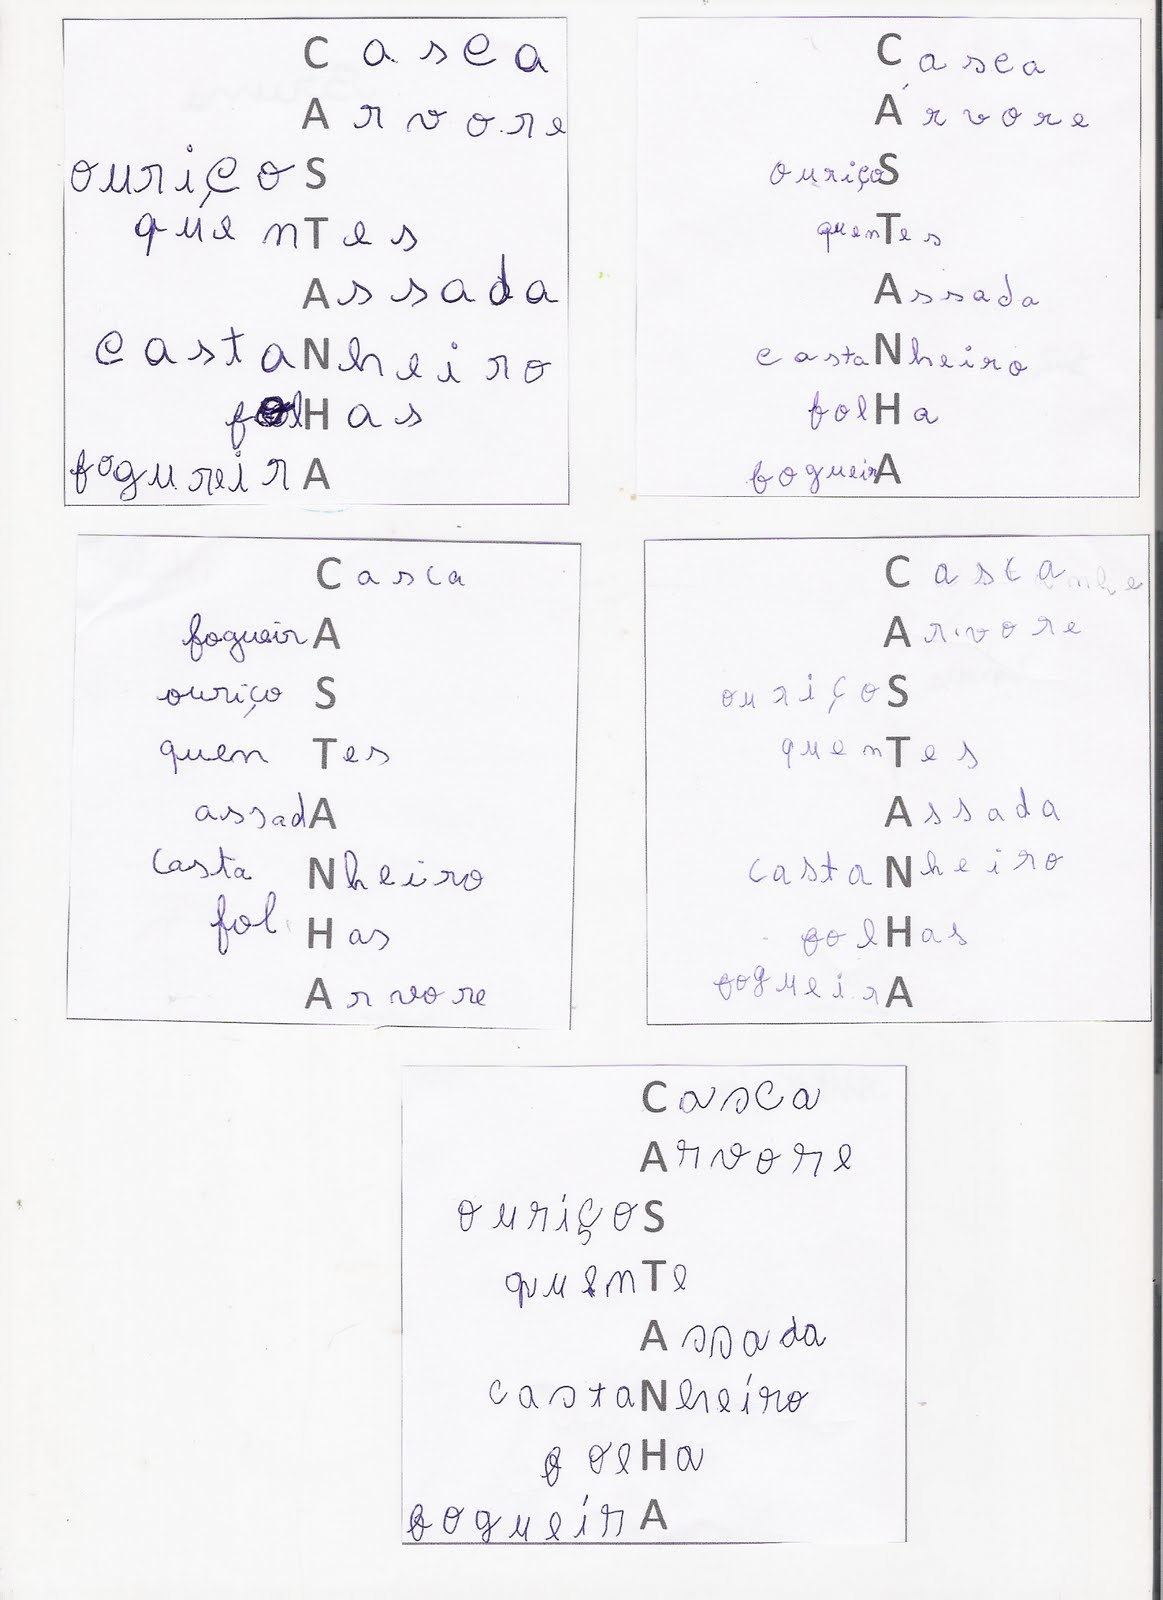 Casca
Arvore
ouriçoS
quenTes
Assada
castaNheiro
folHas
fogureirA
Casca
Árvore
ouriçoS
quenTes
Assada
castaNheiro
folHa
fogueirA
Casca
fogueirA
ouriçoS
quenTes
assadA
castaNheiro
folHas
Arvore
Casca
Arvore
ouriçoS
quenTes
Assada
castaNheiro
folHas
fogueirA
Casca
Arvore
ouriçoS
quenTe
Assada
castaNheiro
folHa
fogueirA